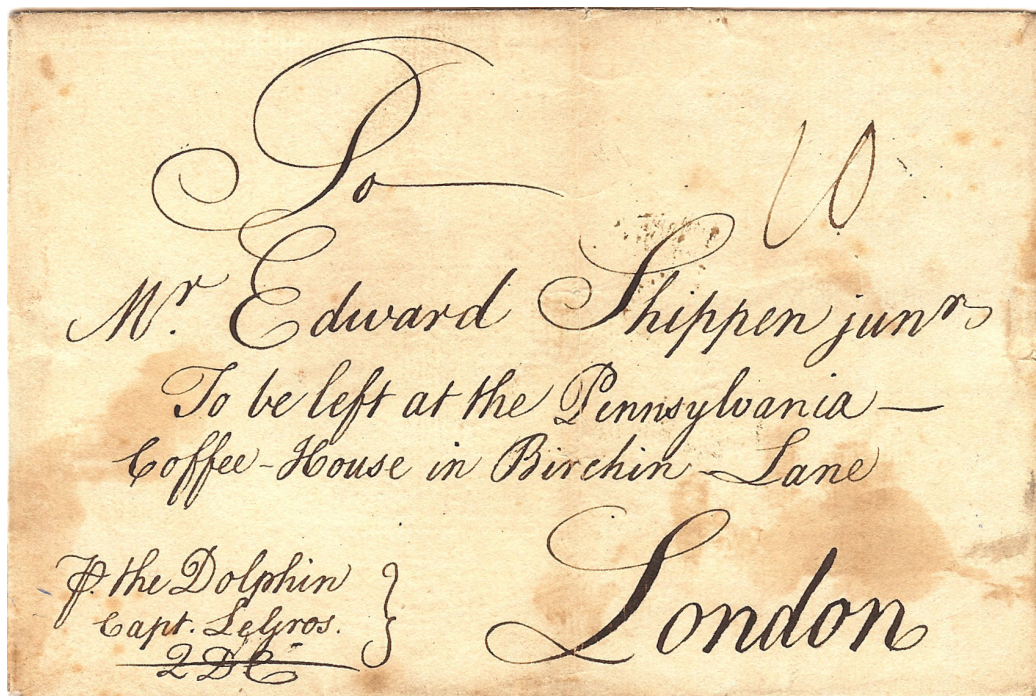 To
10
Mr. Edward Shippen junr
To be left at the Pennsylvania —
Coffee-House in Birchin-Lane
London
P. the Dolphin
Capt. LeGros.
2 DC